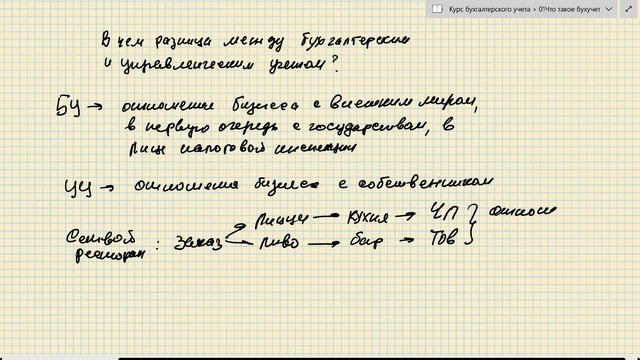 Курс бухгалтерского учета > 01Что такое бухучет
В чем разница между бухгалтерским
и управленческим учетом?
БУ → отношения бизнеса с внешним миром,
в первую очередь с государством, в
лице налоговой инспекции
УУ → отношения бизнеса с собственником
Сетевой ресторан : Заказ
Пицца → кухня → ЧП } относи
Пиво → бар → ТОВ